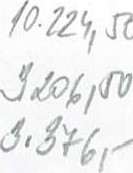 10.224,50
3206,50
3.376,-